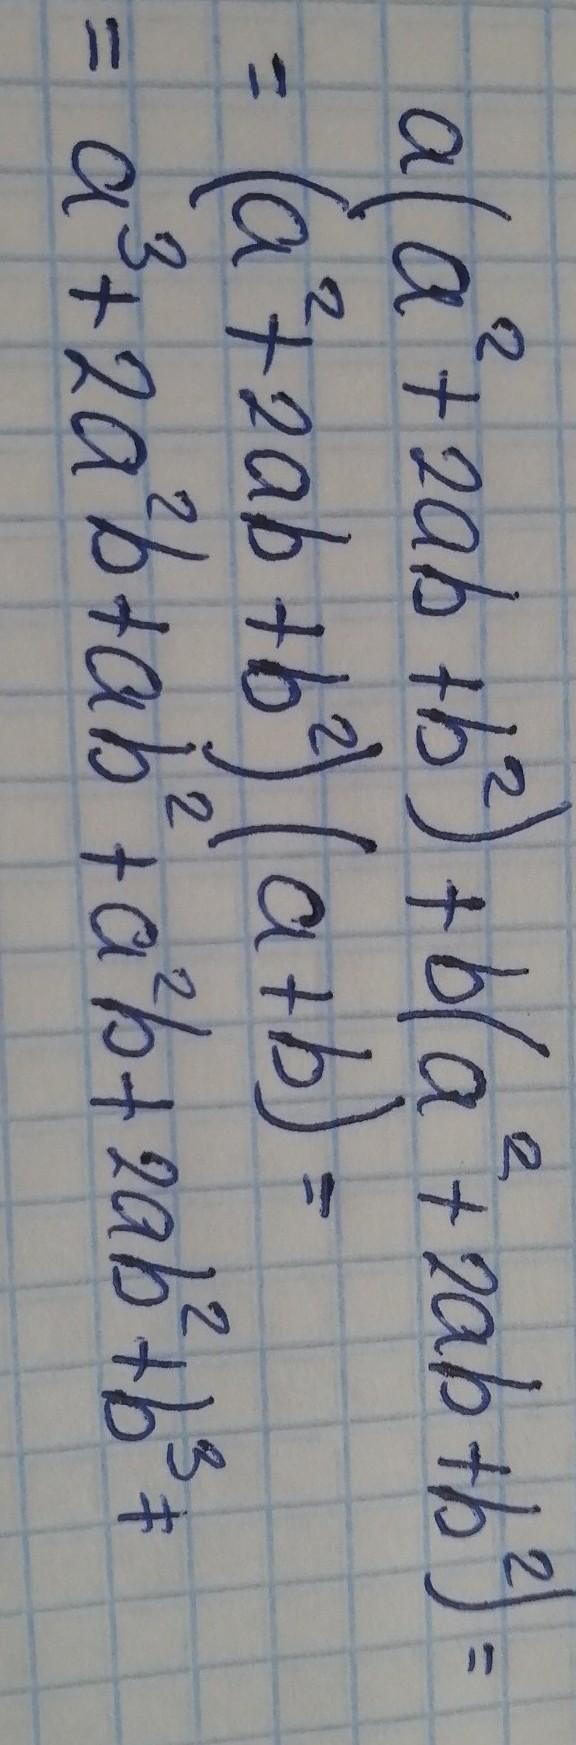 a(a² + 2ab + b²) + b(a² + 2ab + b²) =
= (a² + 2ab + b²)(a + b) =
= a³ + 2a²b + ab² + a²b + 2ab² + b³ =